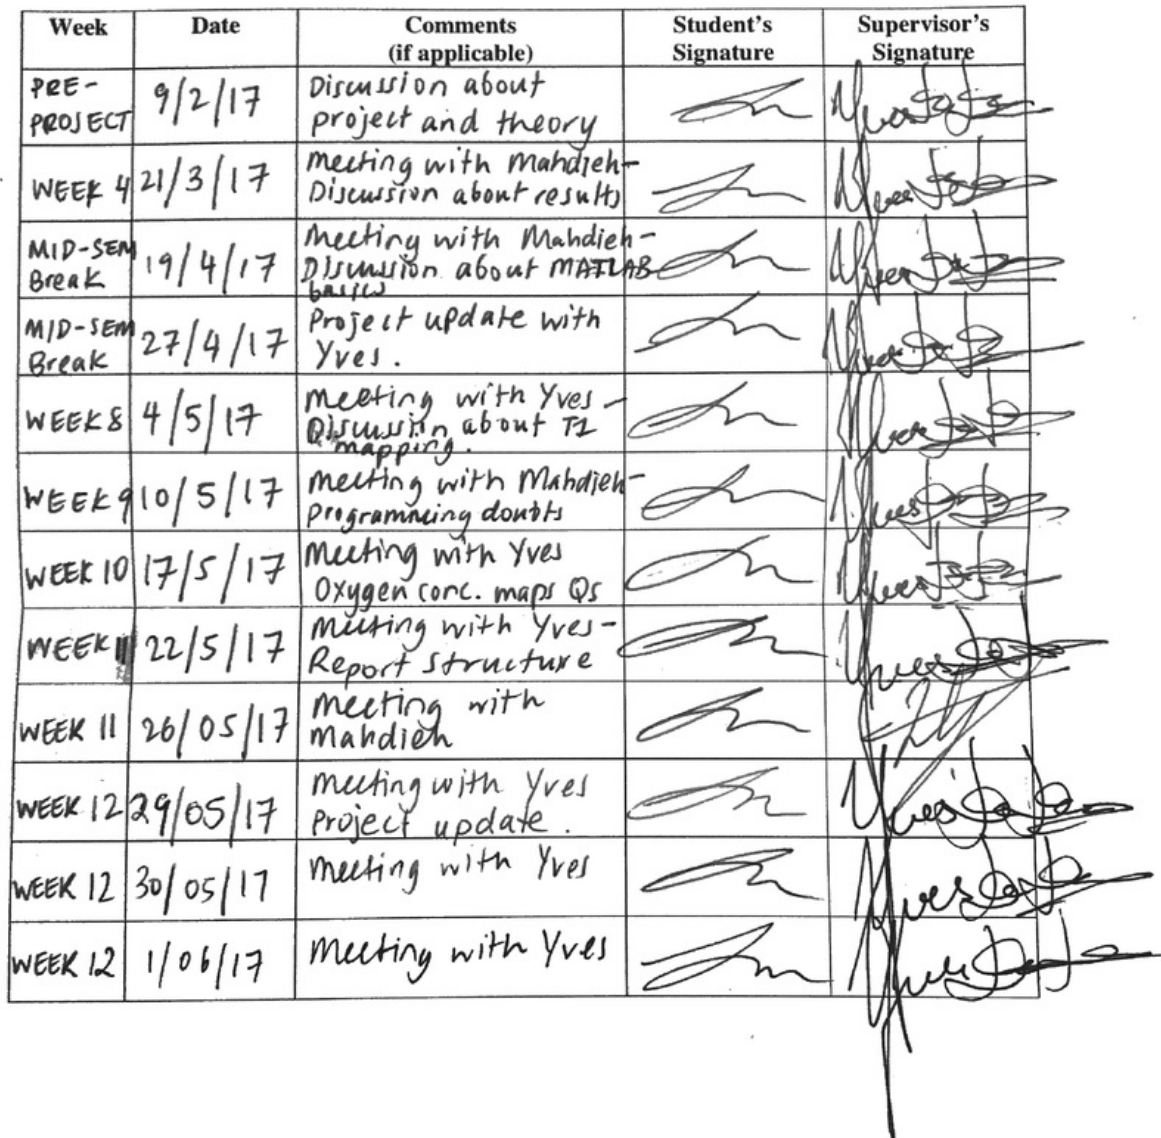 Week Date Comments Student's Supervisor's
(if applicable) Signature Signature
PRE- 9/2/17 Discussion about
PROJECT project and theory
WEEK 4 21/3/17 Meeting with Mahdieh-
Discussion about results
MID-SEM 19/4/17 Meeting with Mahdieh-
Break Discussion about MATLAB
basics
MID-SEM 27/4/17 Project update with
Break Yves.
WEEK 8 4/5/17 Meeting with Yves -
Discussion about T1
mapping.
WEEK 9 10/5/17 Meeting with Mahdieh-
Programming doubts
WEEK 10 17/5/17 Meeting with Yves
Oxygen conc. maps Qs
WEEK 11 22/5/17 Meeting with Yves-
Report structure
WEEK 11 26/05/17 Meeting with
Mahdieh
WEEK 12 29/05/17 Meeting with Yves
Project update.
WEEK 12 30/05/17 Meeting with Yves
WEEK 12 1/06/17 Meeting with Yves